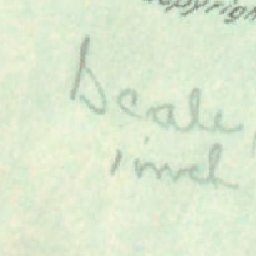 Copyright
Scale,
1 inch